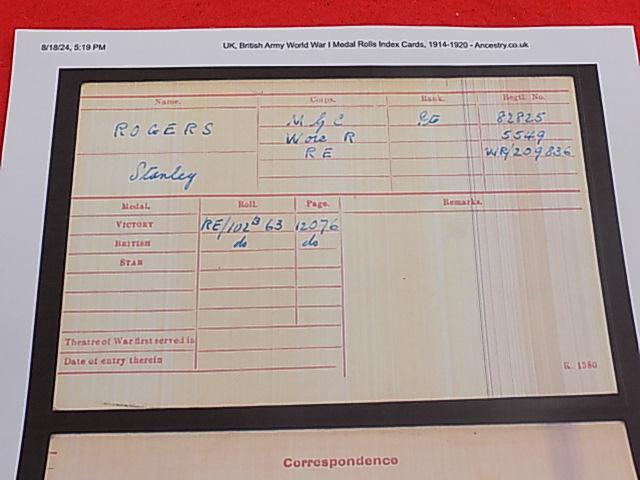 8/18/24, 5:19 PM UK, British Army World War I Medal Rolls Index Cards, 1914-1920 - Ancestry.co.uk
Name. Corps. Rank. Regtl. No.
ROGERS M G C Pte 82825
Worc R 5549
R E WR/209836
Stanley
Medal. Roll. Page. Remarks.
VICTORY RE/102 B 63 12076
BRITISH do do
STAR
Theatre of War first served in
Date of entry therein
K. 1380
Correspondence